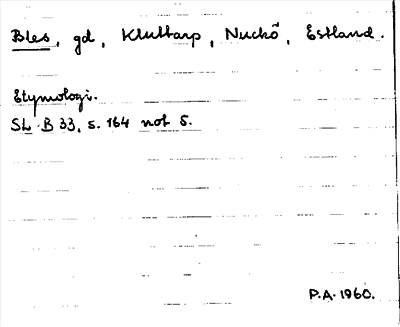 Bles, gd, Kluttarp, Nuckö, Estland.
Etymologi.
SL B 33, s. 164 not 5.
P.A. 1960.